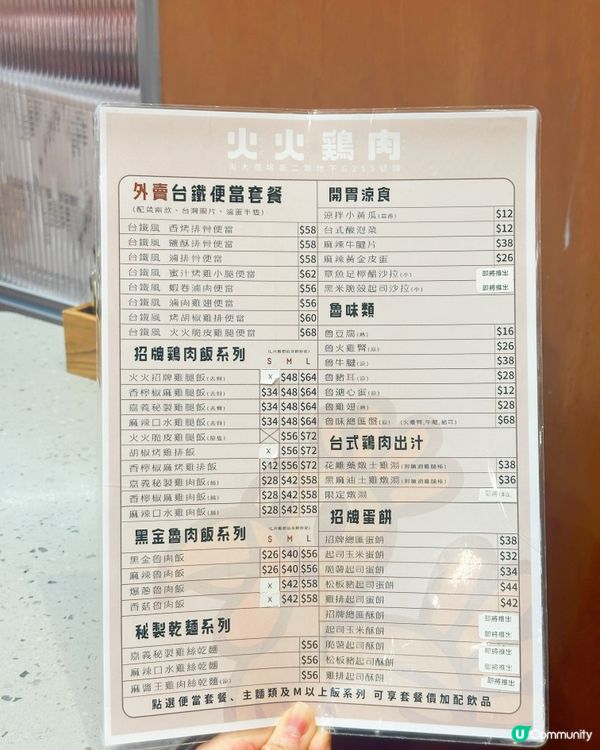 火火鷄肉
外賣台鐵便當套餐
(配菜兩款、台灣腸片、滷蛋半隻)
台鐵風 香烤排骨便當 $58
台鐵風 鹽酥排骨便當 $58
台鐵風 滷排骨便當 $58
台鐵風 蜜汁烤雞小腿便當 $62
台鐵風 蝦卷滷肉便當 $56
台鐵風 滷肉雞翅便當 $56
台鐵風 烤胡椒雞排便當 $60
台鐵風 火火脆皮雞腿便當 $68
招牌鷄肉飯系列
S M L
火火招牌雞腿飯 x $48 $64
香檸椒麻雞腿飯 $34 $48 $64
嘉義秘製雞腿飯 $34 $48 $64
麻辣口水雞腿飯 $34 $48 $64
火火脆皮雞腿飯 $56 $72
胡椒烤雞排飯 x $56 $72
香檸椒麻烤雞排飯 $42 $56 $72
嘉義秘製雞肉飯 $28 $42 $58
香檸椒麻雞肉飯 $28 $42 $58
麻辣口水雞肉飯 $28 $42 $58
黑金魯肉飯系列
S M L
黑金魯肉飯 $26 $40 $56
麻辣魯肉飯 $26 $40 $56
爆蔥魯肉飯 x $42 $58
香菇魯肉飯 x $42 $58
秘製乾麵系列
嘉義秘製雞絲乾麵 $56
麻辣口水雞絲乾麵 $56
麻醬王雞肉絲乾麵(涼) $56
開胃涼食
涼拌小黃瓜(蒜香) $12
台式酸泡菜 $12
麻辣牛腱片 $38
麻辣黃金皮蛋 $26
章魚足檸醋沙拉(小) 即將推出
黑米脆殼起司沙拉(小) 即將推出
魯味類
魯豆腐(熱) $16
魯火雞腎(涼) $26
魯牛腱(涼) $38
魯豬耳(涼) $28
魯溏心蛋(涼) $12
魯雞翅(熱) $28
魯味總匯盤(涼) (火雞腎,牛腱,豬耳) $68
台式鷄肉出汁
花雕藥燉土雞湯 $38
黑麻油土雞燉湯 $36
限定燉湯
招牌蛋餅
招牌總匯蛋餅 $38
起司玉米蛋餅 $32
脆薯起司蛋餅 $34
松板豬起司蛋餅 $44
雞排起司蛋餅 $42
招牌總匯酥餅 即將推出
起司玉米酥餅 即將推出
脆薯起司酥餅 即將推出
松板豬起司酥餅 即將推出
雞排起司酥餅 即將推出
點選便當套餐、主麵類及M以上飯系列 可享套餐價加配飲品
U Community